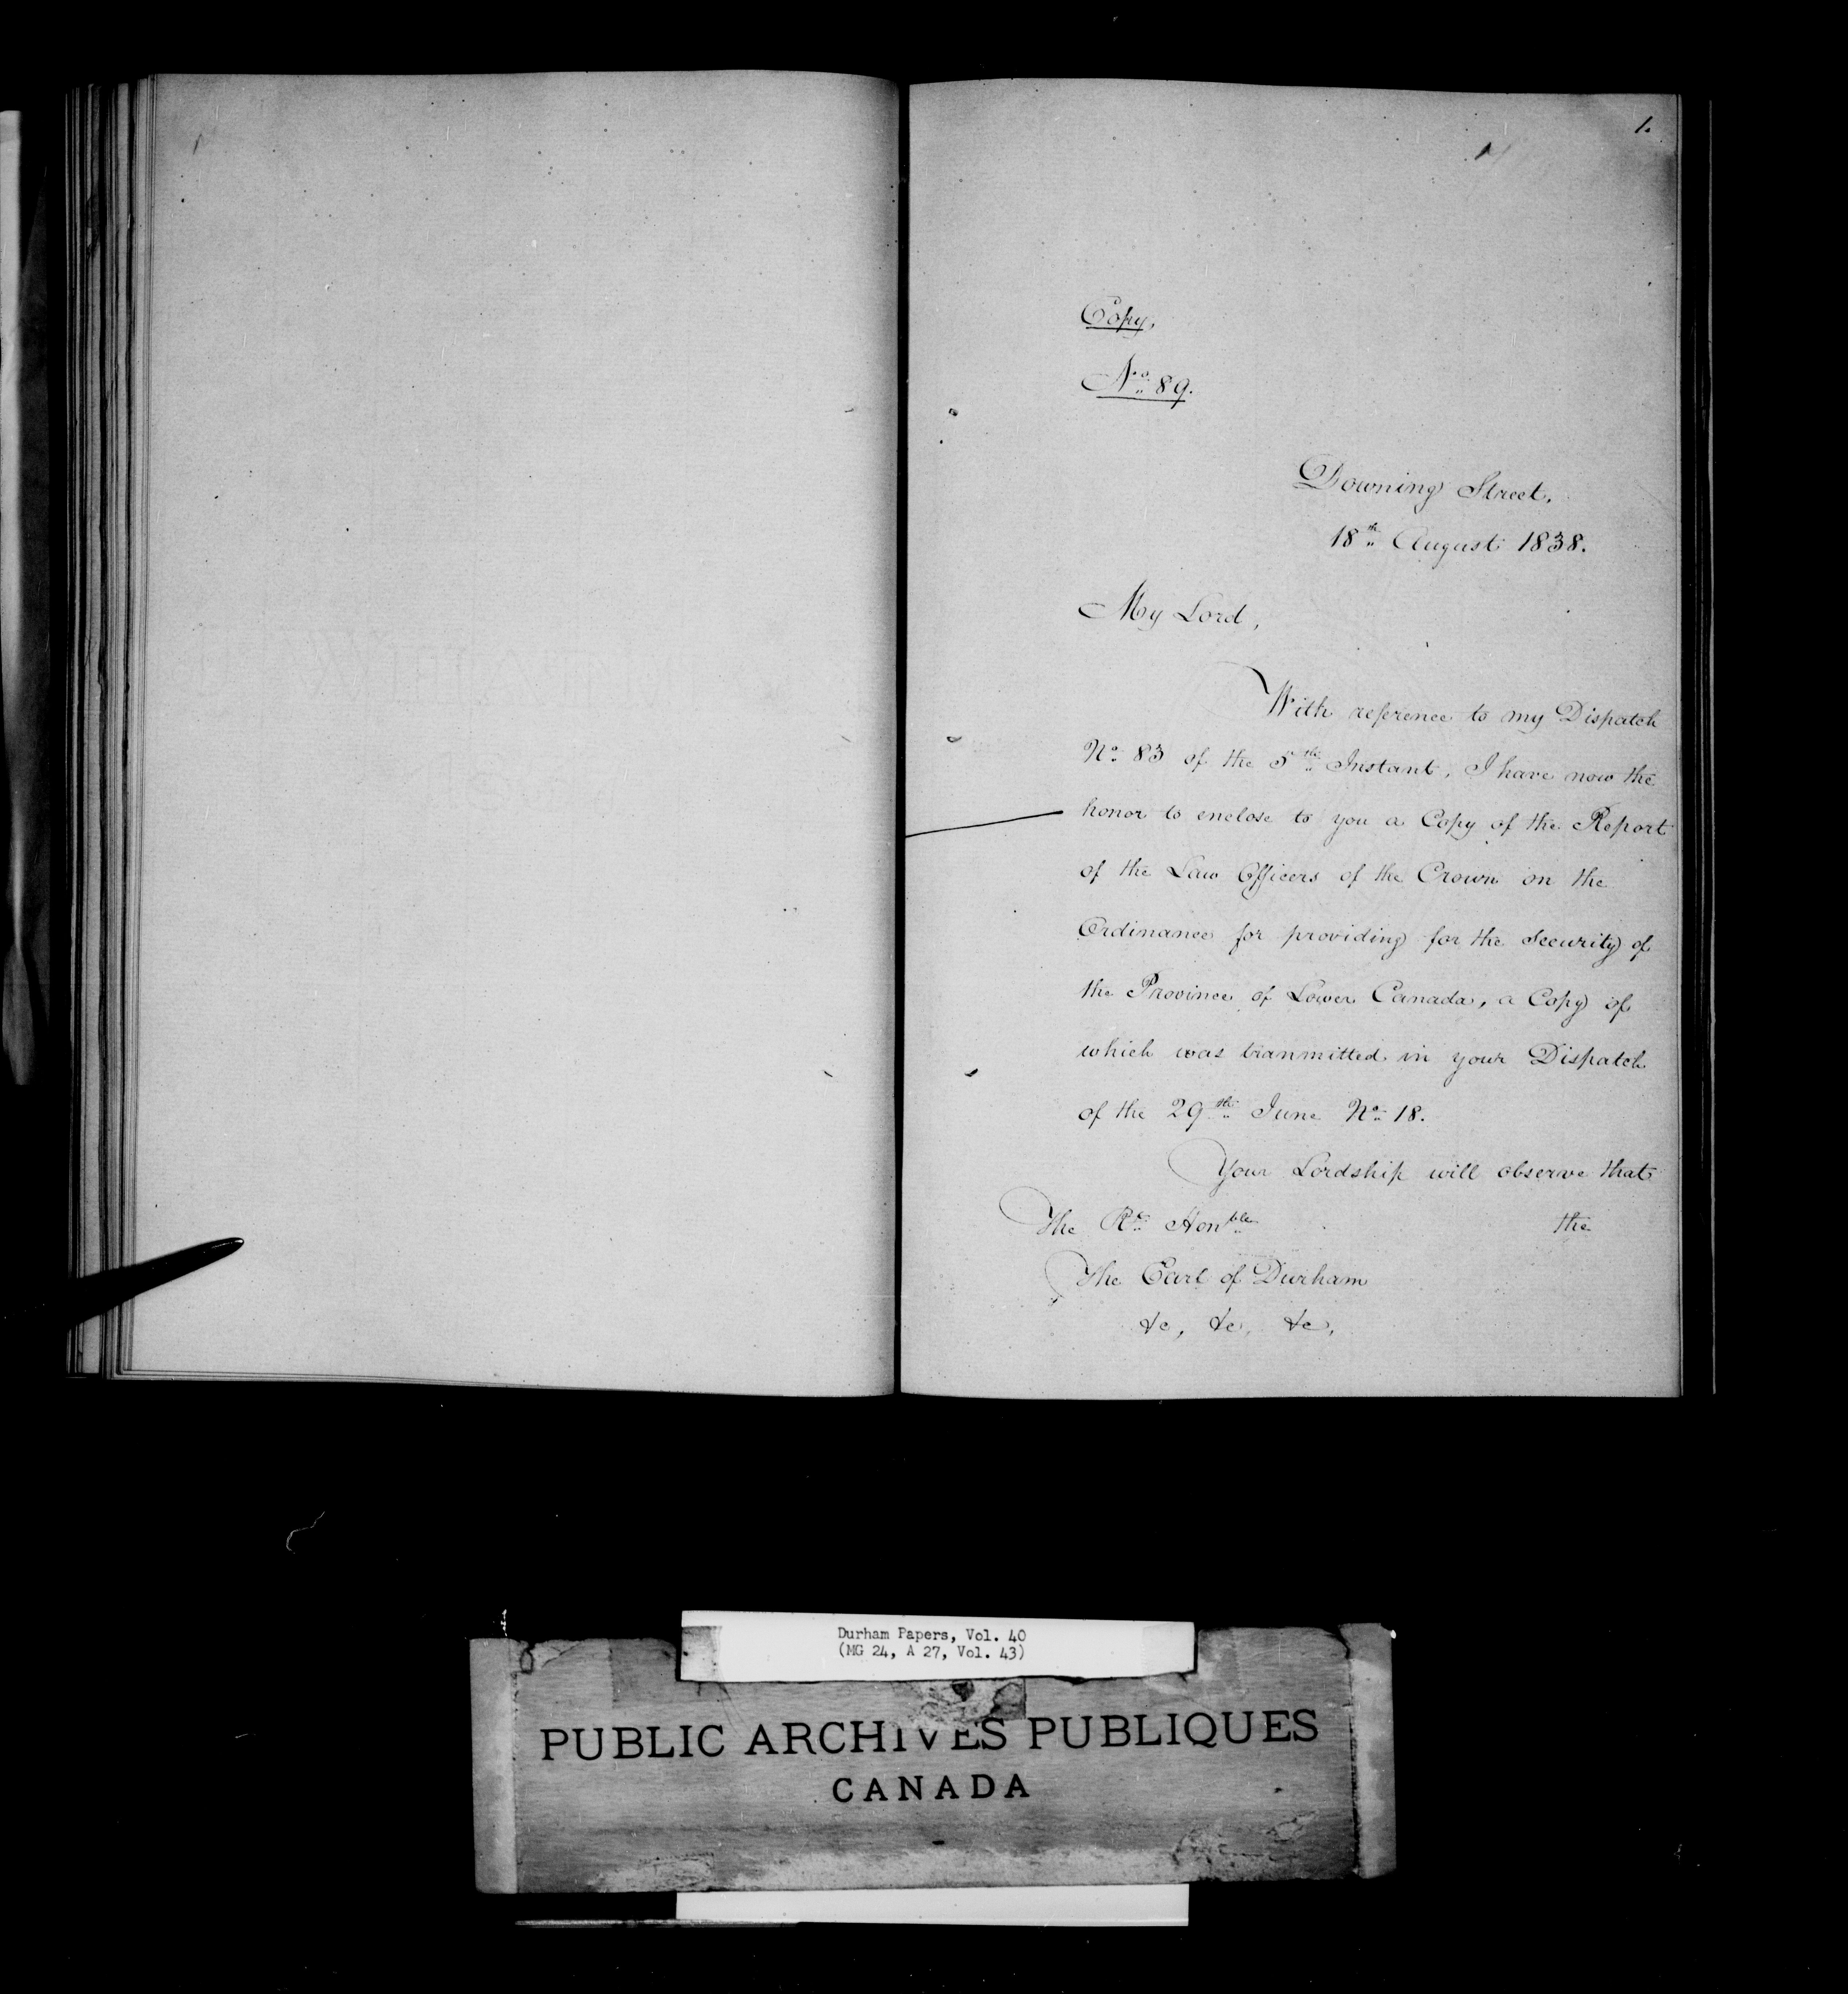 1.
Copy,
No. 89.
Downing Street,
18th August 1838.
My Lord,
With reference to my Dispatch
No. 83 of the 5th Instant, I have now the
honor to enclose to you a Copy of the Report
of the Law Officers of the Crown on the
Ordinance for providing for the security of
the Province of Lower Canada, a Copy of
which was tranmitted in your Dispatch
of the 29th June No. 18.
Your Lordship will observe that
The Rt. Honble the
The Earl of Durham
&c, &c, &c,
Durham Papers, Vol. 40
(MG 24, A 27, Vol. 43)
PUBLIC ARCHIVES PUBLIQUES
CANADA